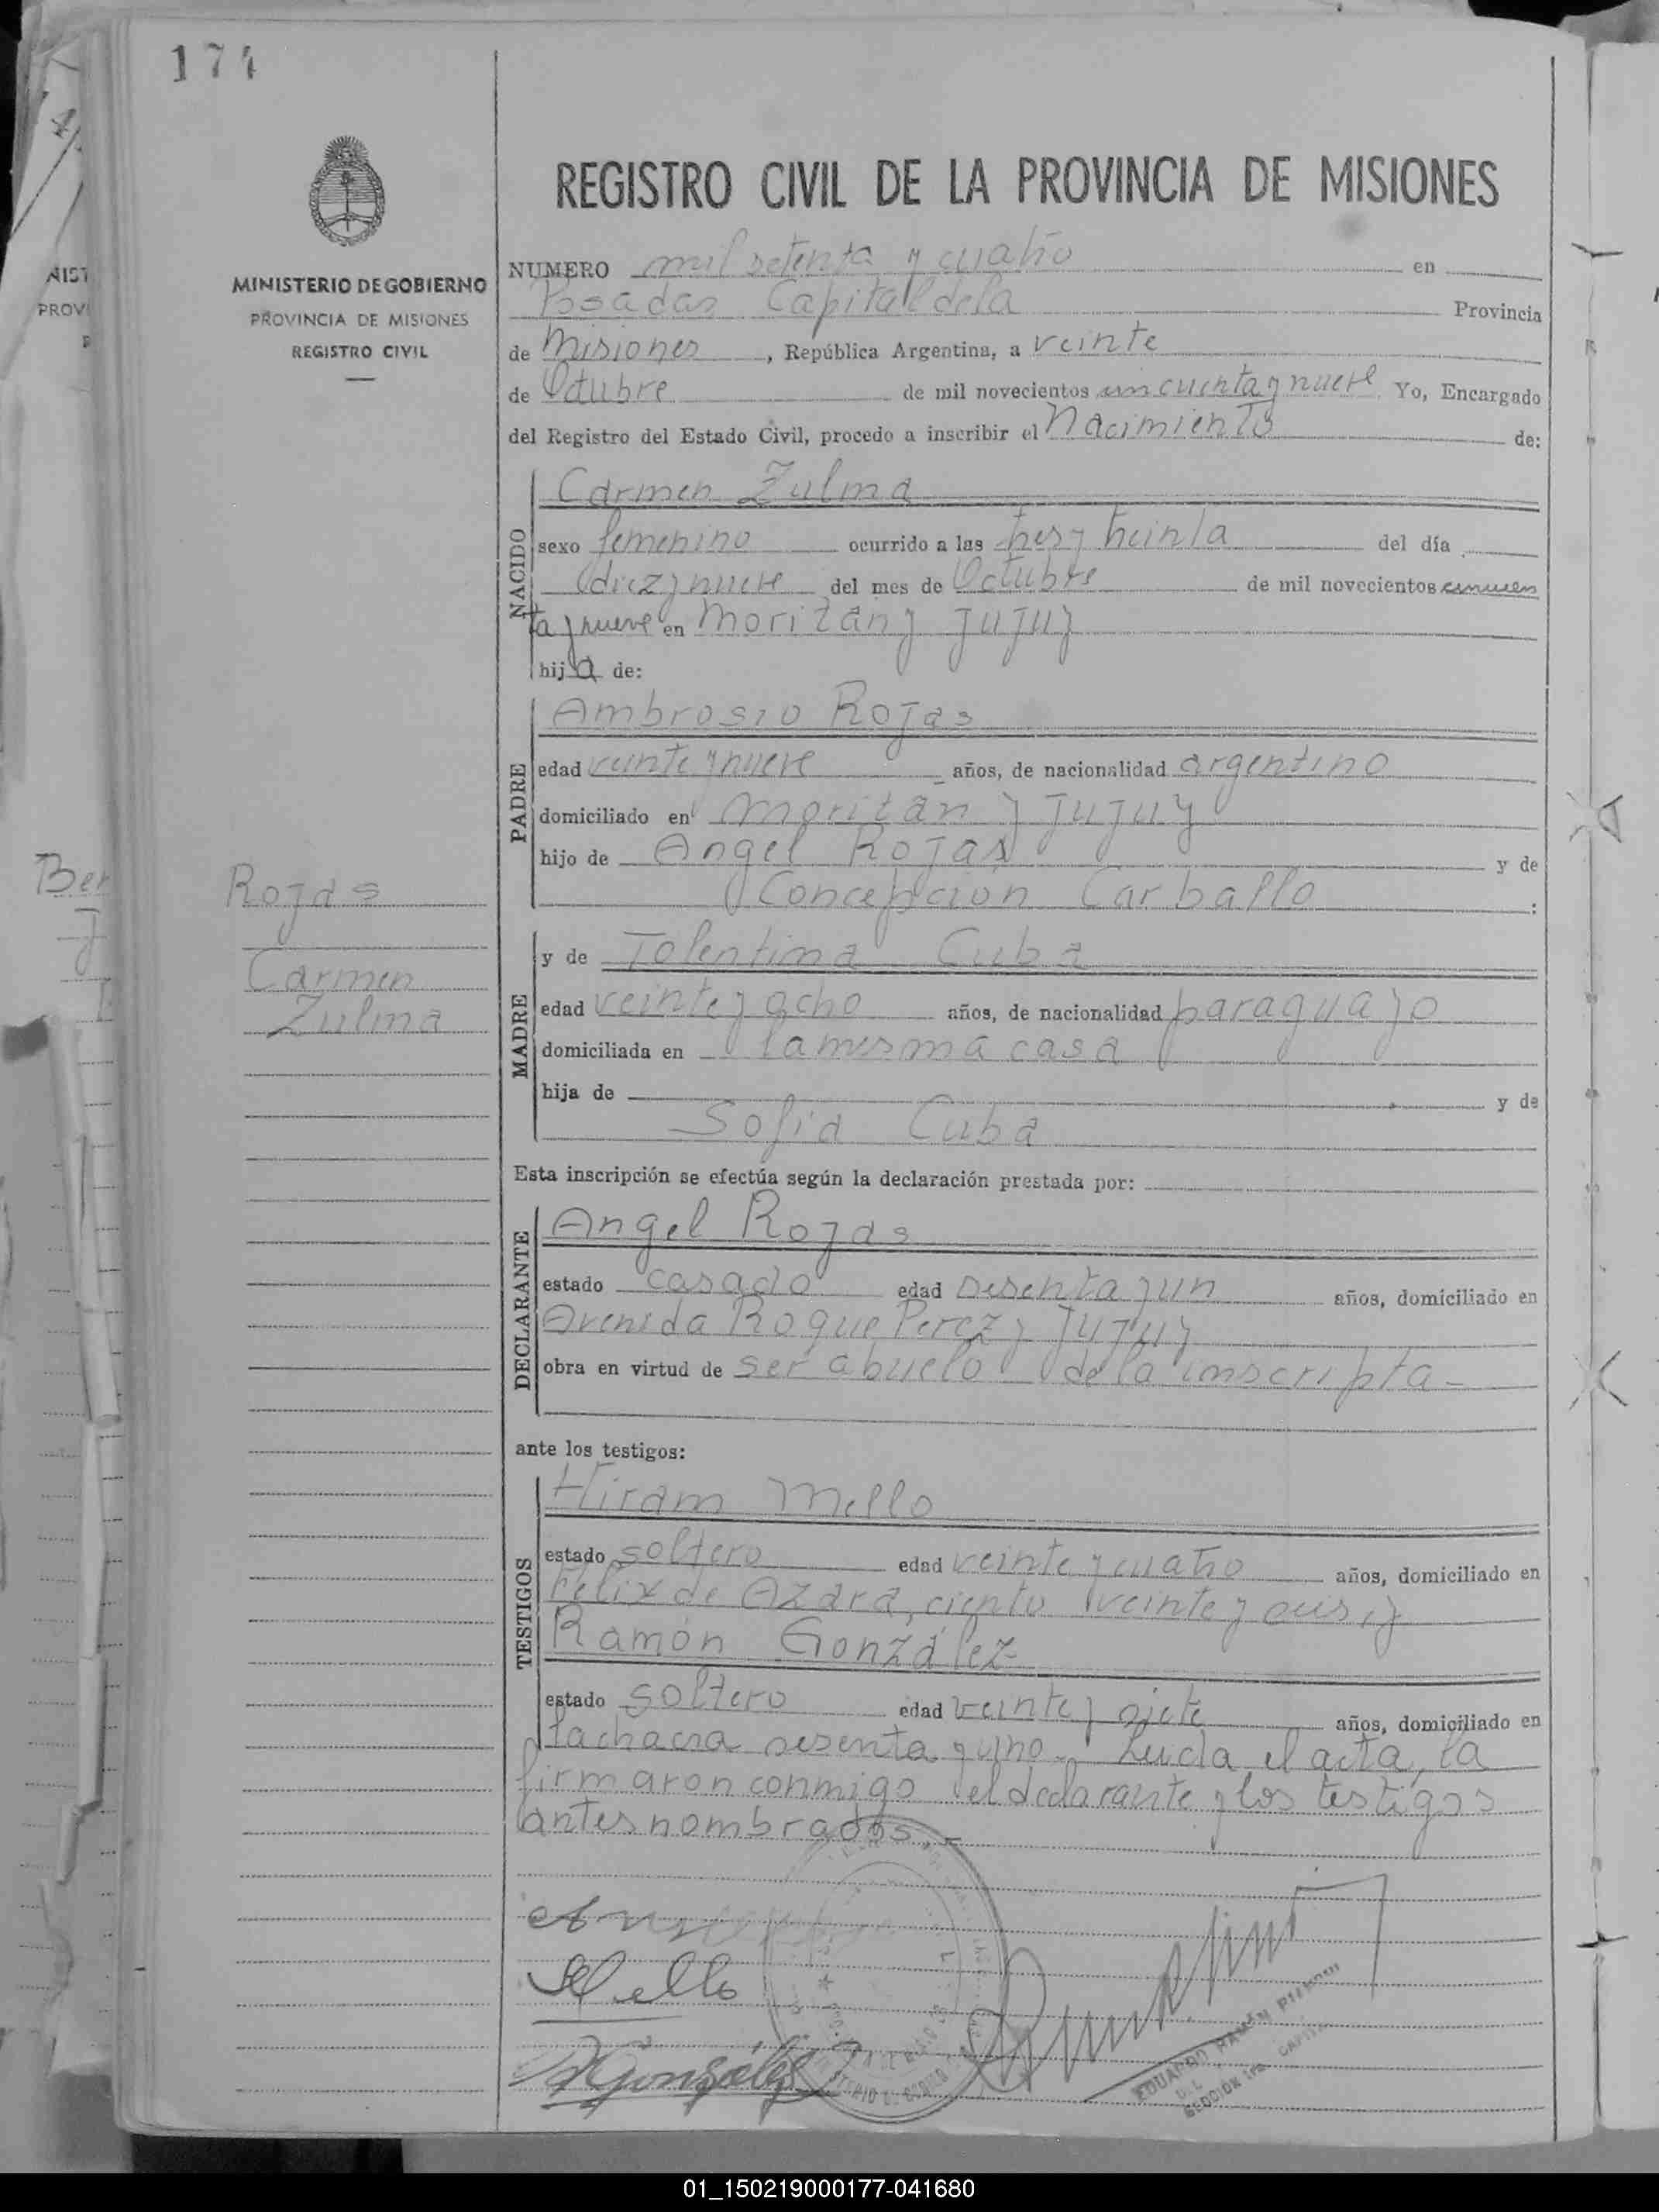 174
MINISTERIO DE GOBIERNO
PROVINCIA DE MISIONES
REGISTRO CIVIL
REGISTRO CIVIL DE LA PROVINCIA DE MISIONES
NUMERO mil setenta y cuatro en
Posadas Capital de la Provincia
de Misiones, República Argentina, a veinte
de Octubre de mil novecientos cincuenta y nueve Yo, Encargado
del Registro del Estado Civil, procedo a inscribir el Nacimiento de:
NACIDO
Carmen Zulma
sexo femenino ocurrido a las tres y treinta del día
diez y nueve del mes de Octubre de mil novecientos cincuen
ta y nueve en Moritán y Jujuy
hija de:
PADRE
Ambrosio Rojas
edad veinte y nueve años, de nacionalidad argentino
domiciliado en Moritán y Jujuy
hijo de Angel Rojas y de
Concepción Carballo :
Rojas
Carmen
Zulma
MADRE
y de Tolentina Cuba
edad veinte y ocho años, de nacionalidad paraguayo
domiciliada en la misma casa
hija de y de
Sofia Cuba
Esta inscripción se efectúa según la declaración prestada por:
DECLARANTE
Angel Rojas
estado casado edad sesenta y un años, domiciliado en
Avenida Roque Perez y Jujuy
obra en virtud de ser abuelo de la inscripta-
ante los testigos:
TESTIGOS
Hiram Mello
estado soltero edad veinte y cuatro años, domiciliado en
Felix de Azara, ciento veinte y seis, y
Ramón González
estado soltero edad veinte y siete años, domiciliado en
la chacra sesenta y uno.- Leida el acta, la
firmaron conmigo el declarante y los testigos
antes nombrados.-
Mello
González
EDUARDO RAMÓN
SECCION 1ra. CAPITAL
01_150219000177-041680